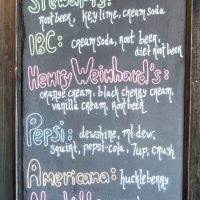 Stewarts:
root beer, key lime, cream soda
IBC: cream soda, root beer,
diet root beer
Henry Weinhard's:
orange cream, black cherry cream,
vanilla cream, root beer
Pepsi: dewshine, mt dew,
squirt, pepsi-cola, 7up, crush
Americana: huckleberry